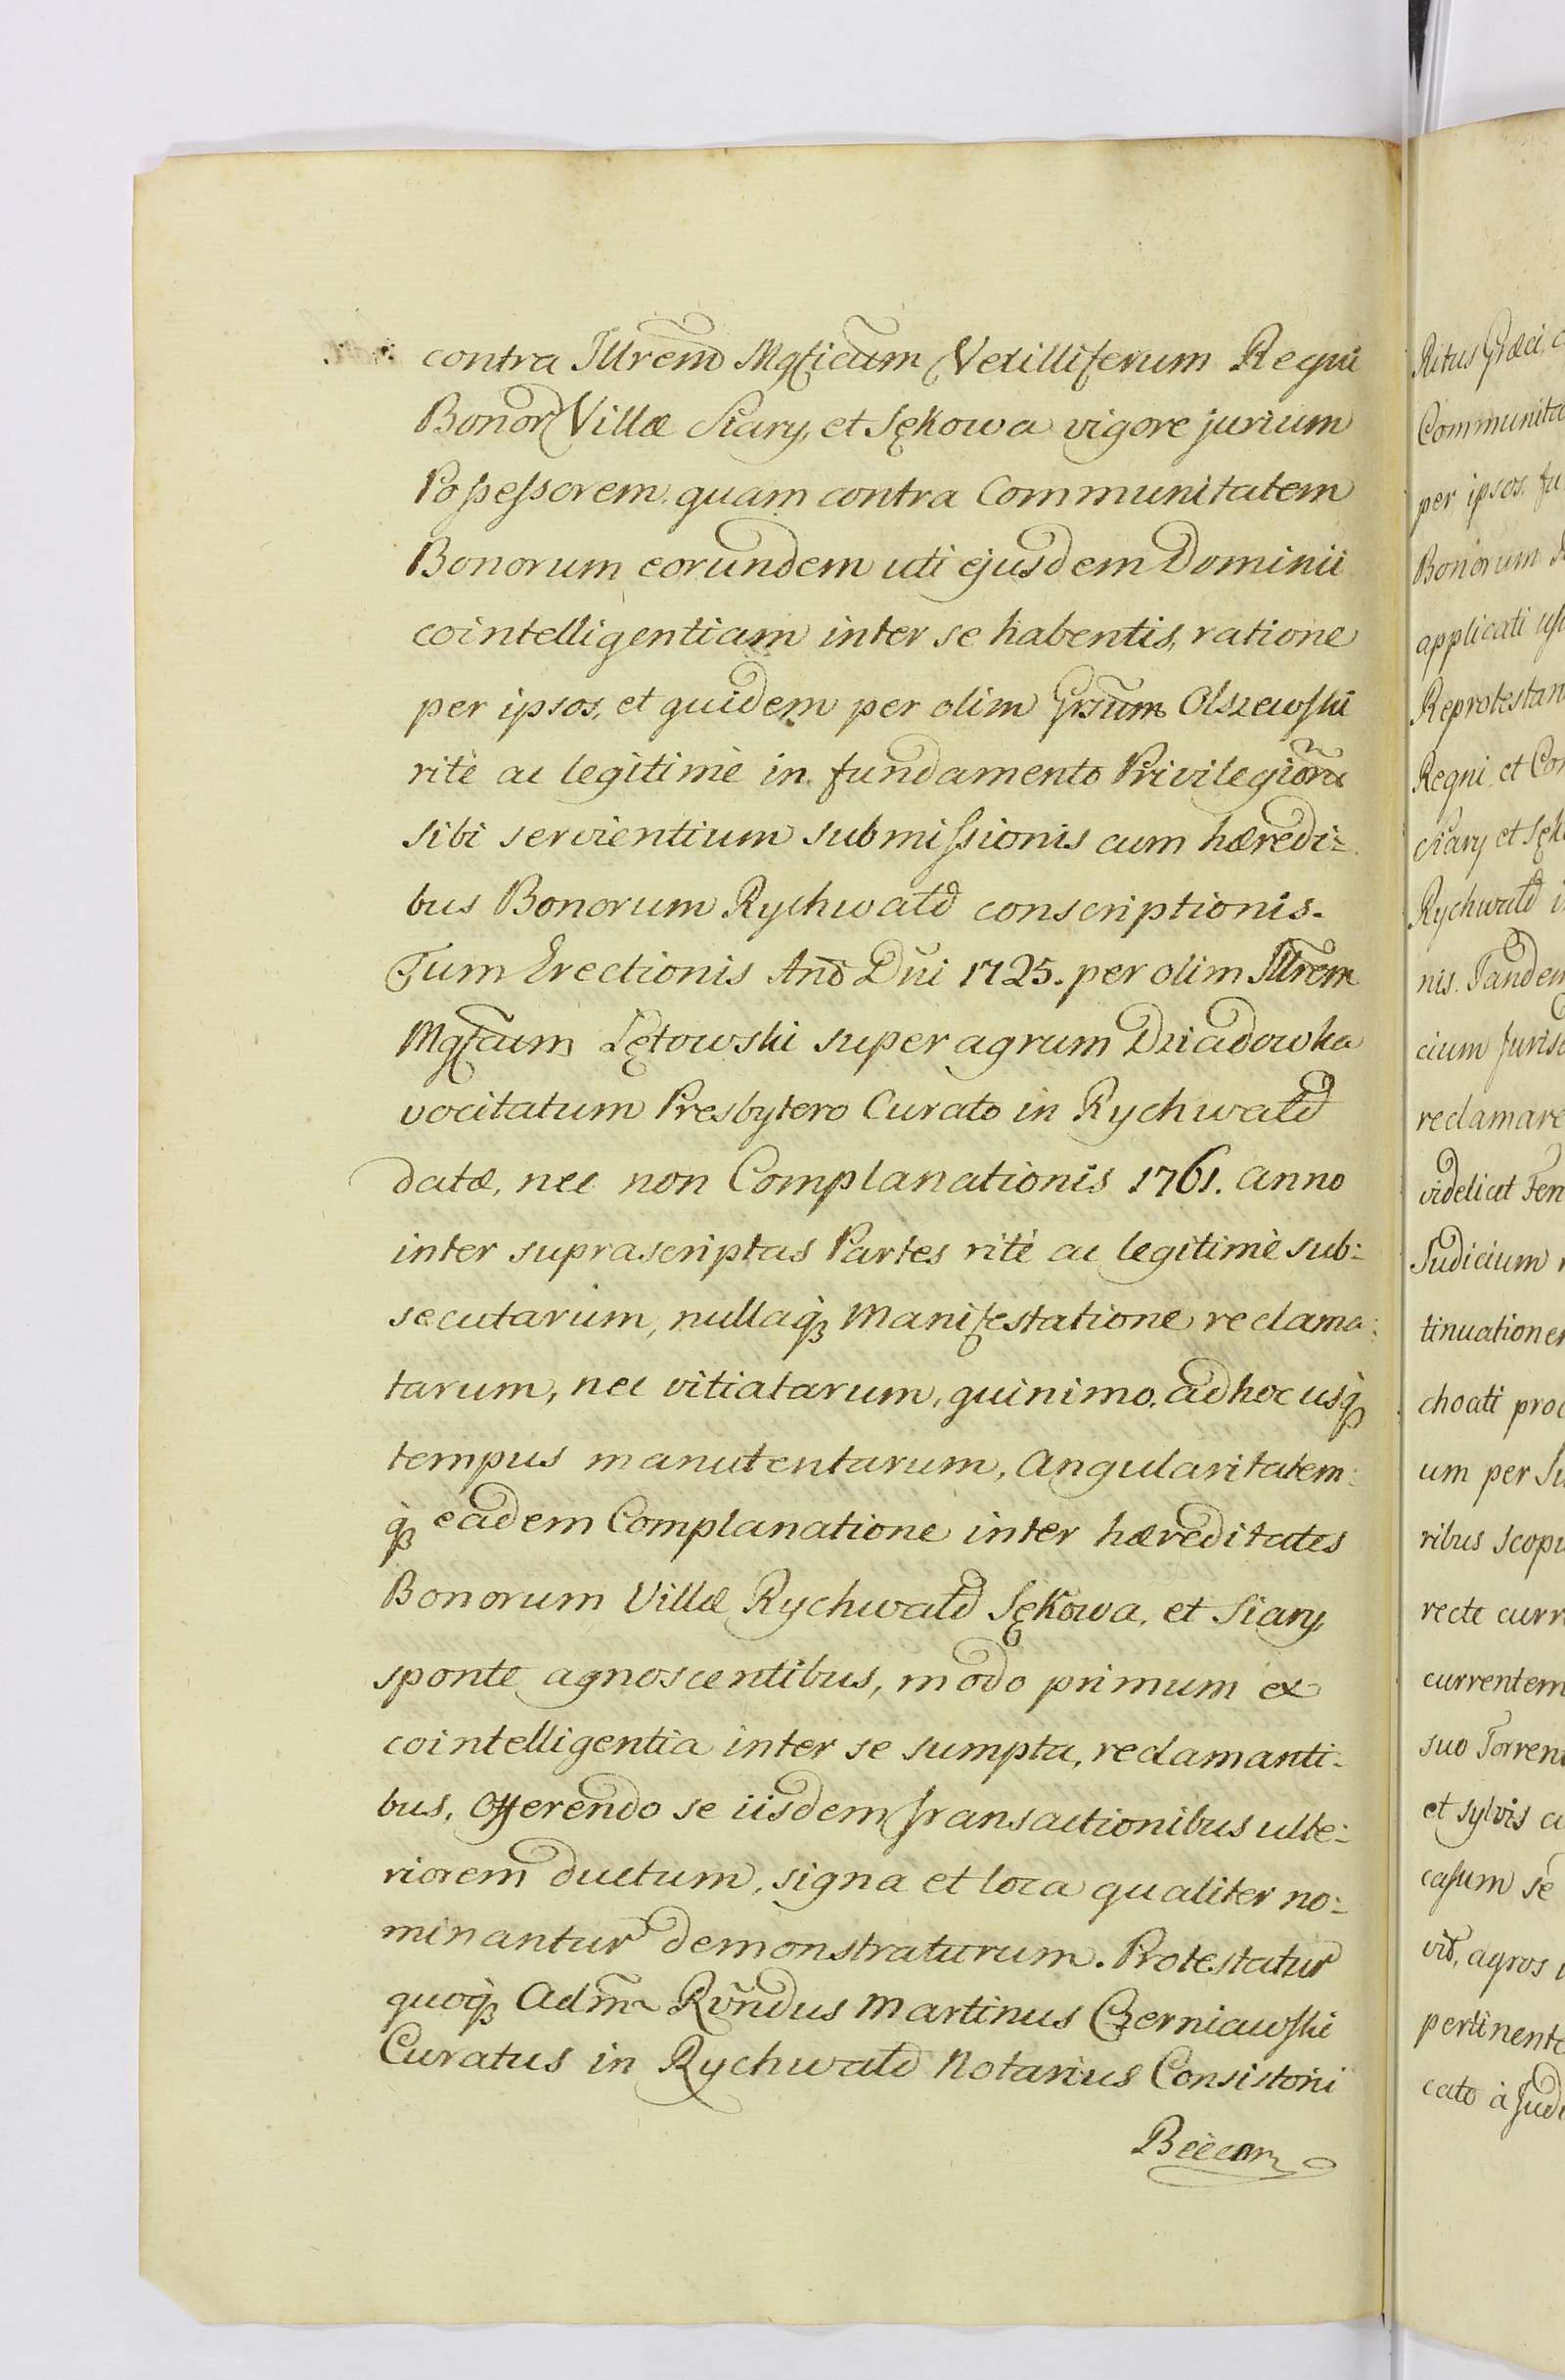 contra Illrem Mgficum Vexilliferum Regni
Bonor Villæ Siary, et Sękowa vigore jurium
Possessorem. quam contra Communitatem
Bonorum eorundem uti ejusdem Dominii
cointelligentiam inter se habentis, ratione
per ipsos, et quidem per olim Grsum Olszewski
ritè ac legitimè in fundamento Privilegiorū
sibi servientium submissionis cum hæredi=
bus Bonorum Rychwałd conscriptionis.
Tum Erectionis Anō Dn̄i 1725. per olim Illrem
Mgfcum Łętowski super agrum Dziadowka
vocitatum Presbytero Curato in Rychwałd
datæ, nec non Complanationis 1761. anno
inter suprascriptas Partes ritè ac legitimè sub=
secutarum, nullaq̷ Manifestatione reclama=
tarum, nec vitiatarum, quinimo, adhoc usq̷
tempus manutentarum, Angularitatem=
q̷ eadem Complanatione inter hæreditates
Bonorum Villæ Rychwałd Sękowa, et Siary,
sponte agnoscentibus, modo primum ex
cointelligentia inter se sumpta, reclamanti=
bus, Offerendo se iisdem Transactionibus ulte=
riorem ductum, signa et loca qualiter no=
minantur demonstraturum. Protestatur
quoq̷ Adm̄ Rūndus Martinus Czerniawski
Curatus in Rychwałd Notarius Consistorii
Biecen
Ritus Græci,
Communita
per ipsos fu
Bonorum
applicati
Reprotestan
Regni, et Con
Siary et Sęk
Rychwałd i
nis. Tandem
cium Juris
reclamare
videlicet Ter
Judicium
tinuationem
choati proc
um per Su
ribus Scopu
recte curr
currentem
suo Torren
et sylvis
casum sē
agros
pertinente
cato à Judi